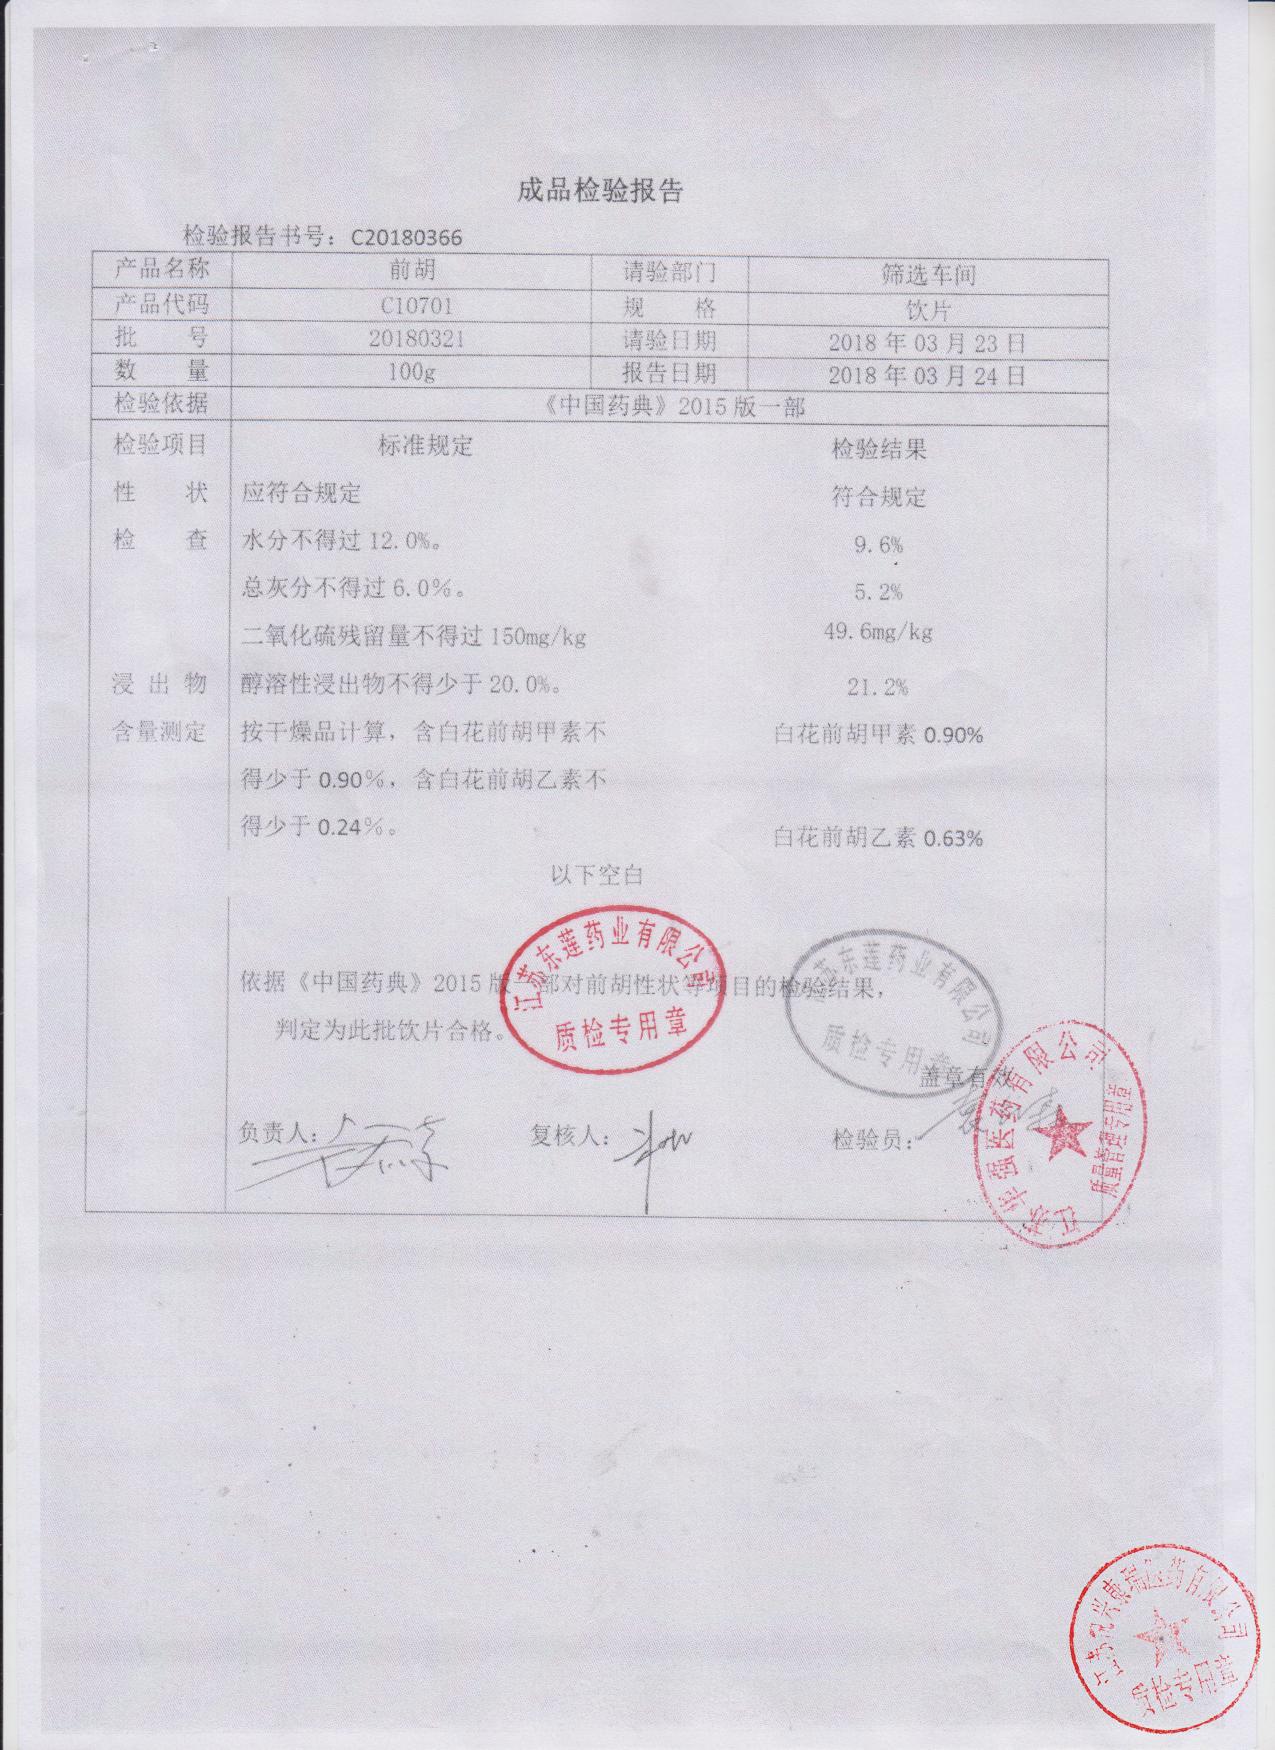 成品检验报告
检验报告书号：C20180366
产品名称 前胡 请验部门 筛选车间
产品代码 C10701 规 格 饮片
批 号 20180321 请验日期 2018 年 03 月 23 日
数 量 100g 报告日期 2018 年 03 月 24 日
检验依据 《中国药典》2015 版一部
检验项目 标准规定 检验结果
性 状 应符合规定 符合规定
检 查 水分不得过 12.0%。 9.6%
总灰分不得过 6.0%。 5.2%
二氧化硫残留量不得过 150mg/kg 49.6mg/kg
浸 出 物 醇溶性浸出物不得少于 20.0%。 21.2%
含量测定 按干燥品计算，含白花前胡甲素不 白花前胡甲素 0.90%
得少于 0.90%，含白花前胡乙素不
得少于 0.24%。 白花前胡乙素 0.63%
以下空白
江苏东莲药业有限公司
质检专用章
江苏东莲药业有限公司
质检专用章
依据《中国药典》2015 版一部对前胡性状等项目的检验结果，
判定为此批饮片合格。
盖章有效
江苏华强医药有限公司
质量管理专用章
负责人： 复核人： 检验员：
康瑞医药有限公司
质检专用章